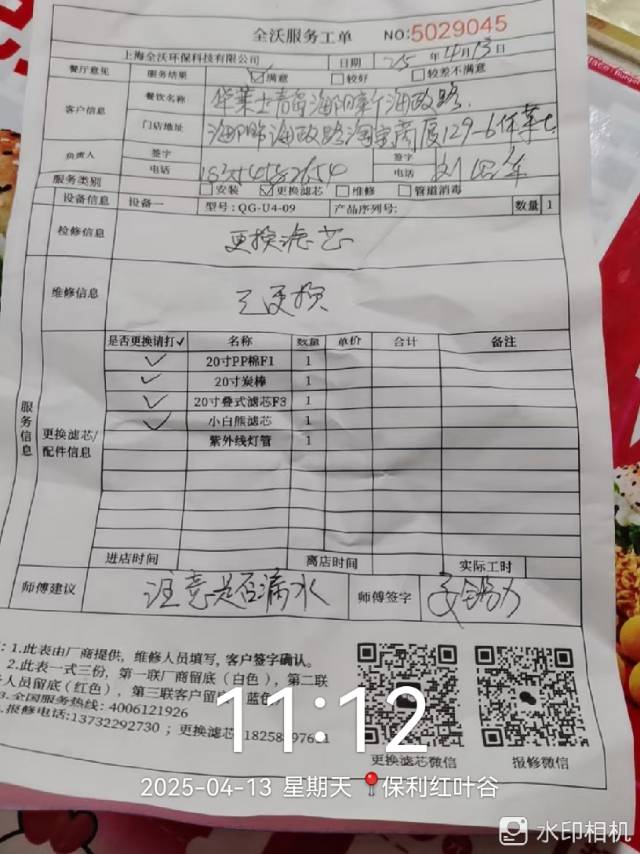 全沃服务工单 NO:5029045
上海全沃环保科技有限公司 日期 25 年 4 月 13 日
餐厅意见 服务结果 ☑满意 □较好 □较差不满意
客户信息 餐饮名称 华莱士青岛海阳新海政路
门店地址 海阳市海政路淘宝商厦129-6华莱士
负责人 签字 签字
电话 电话
服务类别 □安装 ☑更换滤芯 □维修 □管道消毒
设备信息 设备一 型号: QG-U4-09 产品序列号: 数量 1
检修信息 更换滤芯
维修信息 已更换
服务信息 更换滤芯/配件信息
是否更换请打✓ 名称 数量 单价 合计 备注
✓ 20寸PP棉F1 1
✓ 20寸炭棒 1
✓ 20寸叠式滤芯F3 1
✓ 小白熊滤芯 1
紫外线灯管 1
进店时间 离店时间 实际工时
师傅建议 注意是否漏水 师傅签字
: 1.此表由厂商提供，维修人员填写，客户签字确认。
2.此表一式三份，第一联厂商留底(白色)，第二联
人员留底(红色)，第三联客户留
3.全国服务热线: 4006121926
报修电话:13732292730 ; 更换滤芯
更换滤芯微信 报修微信
11:12
2025-04-13 星期天 保利红叶谷
水印相机